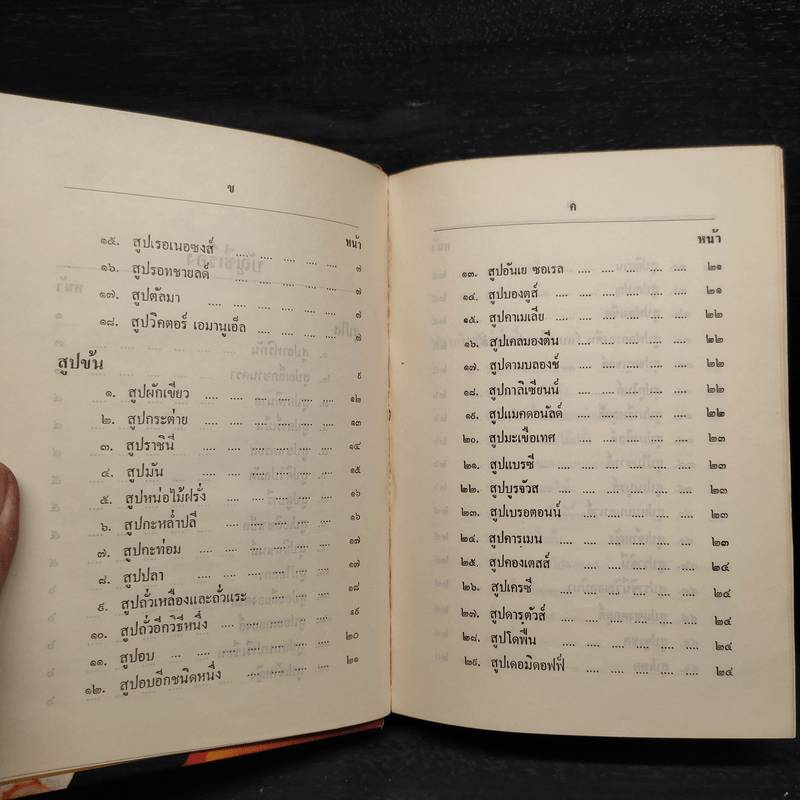 ข
หน้า
๑๕. สูปเรอเนอซงส์ .... .... .... .... .... ๗
๑๖. สูปรอทชายลด์ .... .... .... .... .... ๗
๑๗. สูปตัลมา .... .... .... .... .... ๗
๑๘. สูปวิคตอร์ เอมานูเอ็ล .... .... .... .... ๗
สูปข้น ๙
๑. สูปผักเขียว .... .... .... .... .... ๑๒
๒. สูปกระต่าย .... .... .... .... .... ๑๓
๓. สูปราชินี .... .... .... .... .... ๑๔
๔. สูปมัน .... .... .... .... .... ๑๕
๕. สูปหน่อไม้ฝรั่ง .... .... .... .... .... ๑๖
๖. สูปกะหล่ำปลี .... .... .... .... .... ๑๖
๗. สูปกะท่อม .... .... .... .... .... ๑๗
๘. สูปปลา .... .... .... .... .... ๑๗
๙. สูปถั่วเหลืองและถั่วแระ .... .... .... .... ๑๘
๑๐. สูปถั่วอีกวิธีหนึ่ง .... .... .... .... .... ๑๙
๑๑. สูปอบ .... .... .... .... .... ๒๐
๑๒. สูปอบอีกชนิดหนึ่ง .... .... .... .... ๒๑
ค
หน้า
๑๓. สูปอันเย ซอเรล .... .... .... .... .... ๒๑
๑๔. สูปบองตูส์ .... .... .... .... .... ๒๑
๑๕. สูปคาเมเลีย .... .... .... .... .... ๒๒
๑๖. สูปเคลมองตีน .... .... .... .... .... ๒๒
๑๗. สูปดามบลองช์ .... .... .... .... .... ๒๒
๑๘. สูปกาลิเซียนน์ .... .... .... .... .... ๒๒
๑๙. สูปแมคดอนัลด์ .... .... .... .... .... ๒๒
๒๐. สูปมะเขือเทศ .... .... .... .... .... ๒๓
๒๑. สูปแบรซี .... .... .... .... .... ๒๓
๒๒. สูปบูรจัวส .... .... .... .... .... ๒๓
๒๓. สูปเบรอตอนน์ .... .... .... .... .... ๒๓
๒๔. สูปคารเมน .... .... .... .... .... ๒๓
๒๕. สูปคองเตสส์ .... .... .... .... .... ๒๔
๒๖. สูปเครซี .... .... .... .... .... ๒๔
๒๗. สูปดารตัวส์ .... .... .... .... .... ๒๔
๒๘. สูปโดฟีน .... .... .... .... .... ๒๔
๒๙. สูปเดอมิดอฟฟ์ .... .... .... .... .... ๒๔